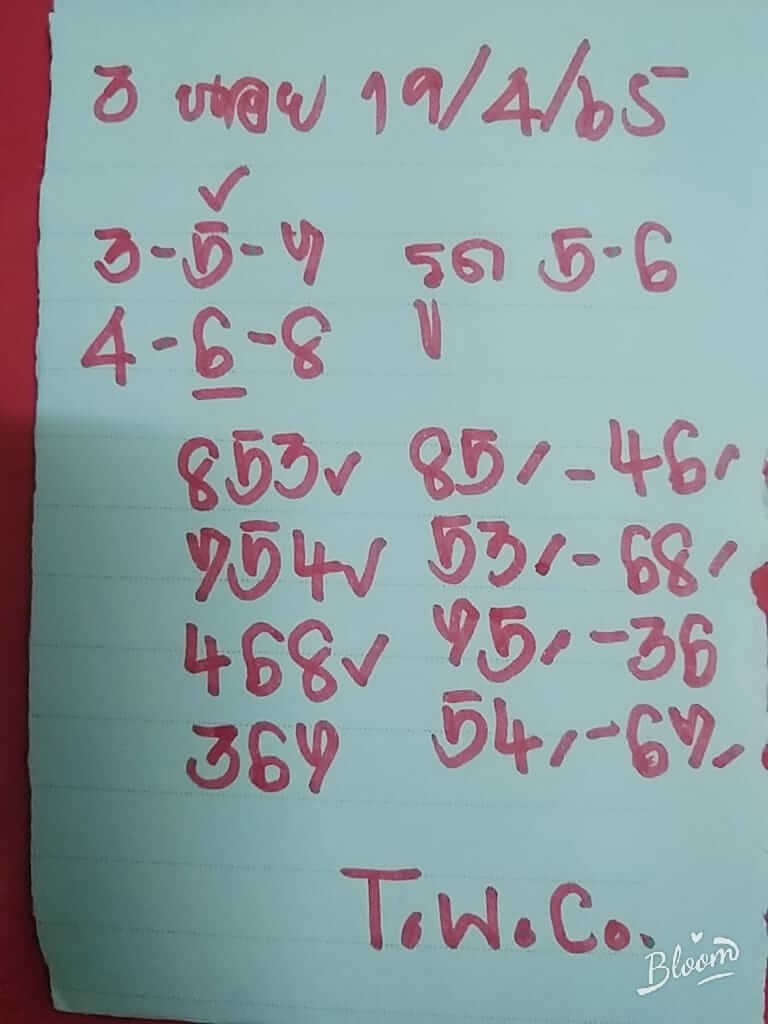 3 หน่อย 19/4/65
✓
3-5-7 รูด 5-6
4-6-8
853✓ 85/-46/
754✓ 53/-68/
468✓ 75/-36
367 54/-67/
T.W.Co.
Bloom